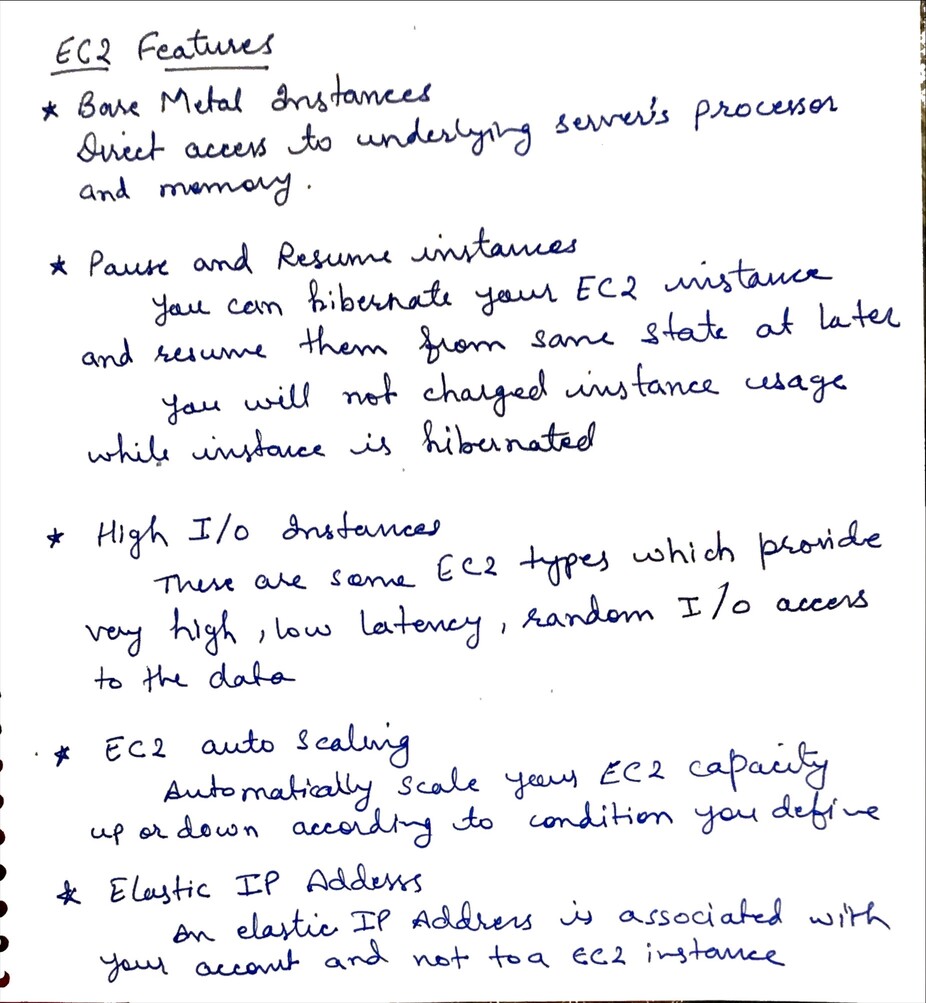 EC2 Features
* Bare Metal Instances
Direct access to underlying server's processor
and memory.
* Pause and Resume instances
You can hibernate your EC2 instance
and resume them from same state at later
You will not charged instance usage
while instance is hibernated
* High I/O Instances
There are some EC2 types which provide
very high , low latency , random I/O access
to the data
* EC2 auto scaling
Automatically scale your EC2 capacity
up or down according to condition you define
* Elastic IP Address
An elastic IP Address is associated with
your account and not to a EC2 instance